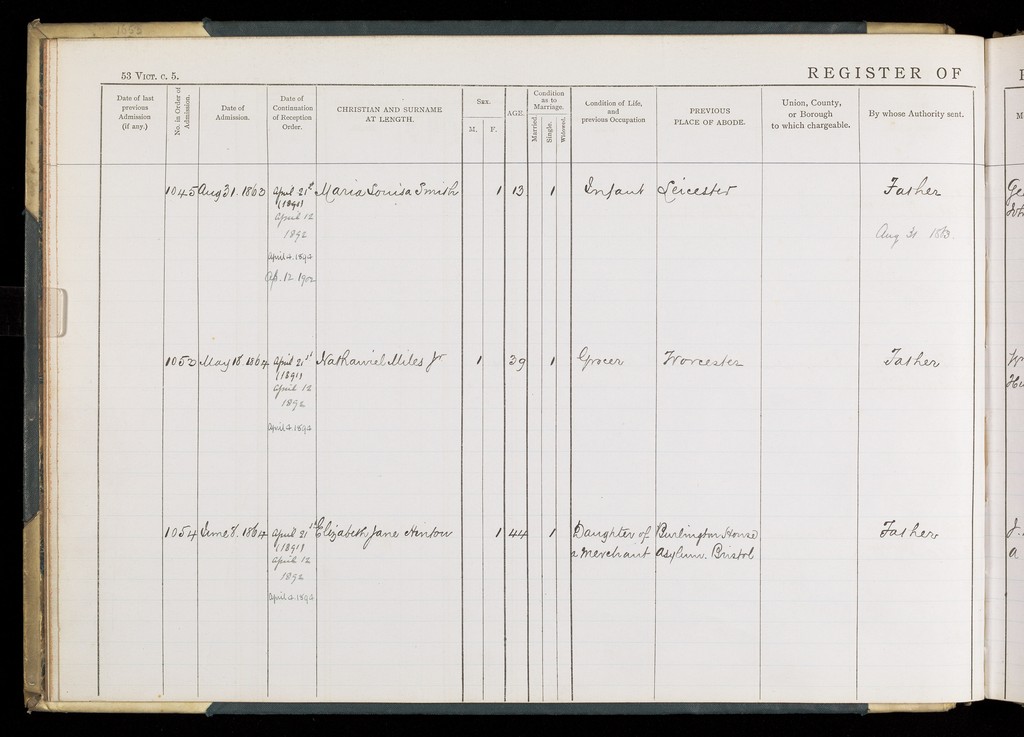 53 VICT. C. 5.
REGISTER OF
Date of last previous Admission (if any.)
No. in Order of Admission.
Date of Admission.
Date of Continuation of Reception Order.
CHRISTIAN AND SURNAME AT LENGTH.
Sex.
M.
F.
AGE.
Condition as to Marriage.
Married.
Single.
Widowed.
Condition of Life, and previous Occupation
PREVIOUS PLACE OF ABODE.
Union, County, or Borough to which chargeable.
By whose Authority sent.
1045 Aug 31. 1863 April 21st Maria Louisa Smith 1 13 1 Infant Leicester Father
(1891)
April 12
1892
Aug 31 1863.
April 4. 1894
Ap. 12 1902
1052 May 18. 1864 April 21st Nathaniel Miles Jr 1 39 1 Grocer Worcester Father
(1891)
April 12
1892
April 4. 1894
1054 June 8. 1864 April 21st Elizabeth Jane Hinton 1 44 1 Daughter of Burlington House Father
(1891) a Merchant Asylum. Bristol
April 12
1892
April 4. 1894